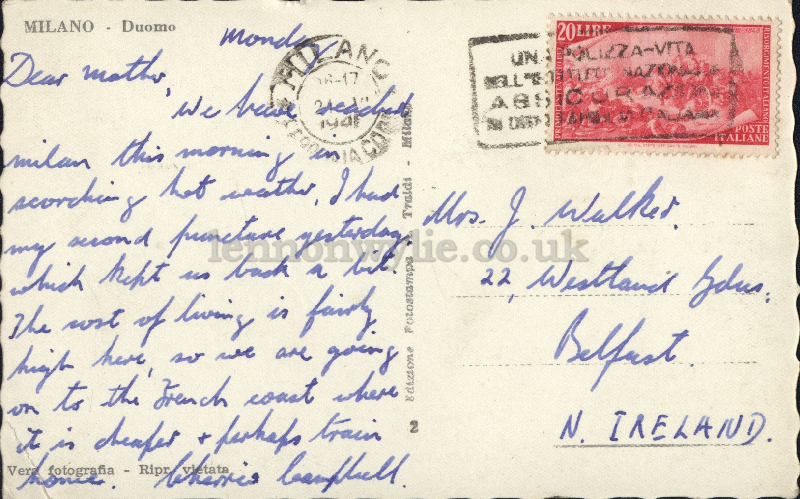 MILANO - Duomo
Monday
Dear mother,
We have reached
milan this morning in
scorching hot weather. I had
my second puncture yesterday
which kept us back a bit.
The cost of living is fairly
high here, so we are going
on to the French coast where
it is cheaper + perhaps train
home. Cherrie Campbell.
Vera fotografia - Ripr. vietata
Edizione Fotostampa Traldi - Milano
2
MILANO
16-17
CORR
UNA POLIZZA-VITA
DELL'ISTITUTO NAZIONALE
ASSICURAZIONI
20 LIRE
RISORGIMENTO ITALIANO
POSTE
ITALIANE
Mrs. J. Walker.
22, Westland Gdns.
Belfast.
N. IRELAND.
lennonwylie.co.uk